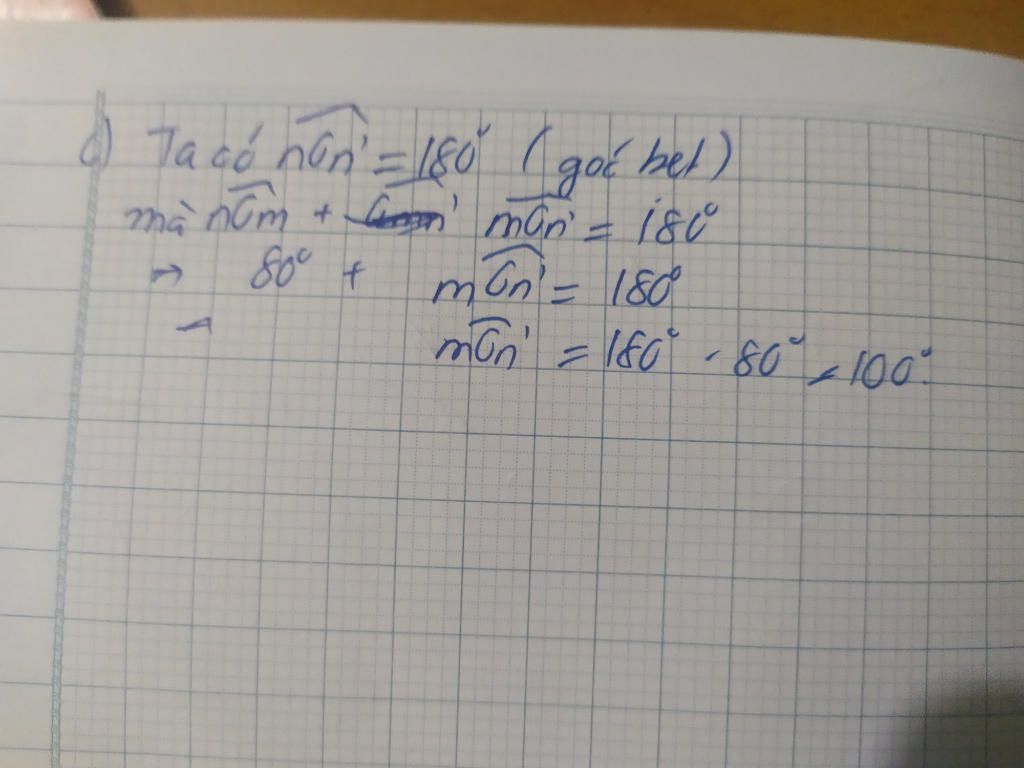 c) Ta có nOn' = 180° (góc bẹt)
mà nOm + mOn' = 180°
→ 80° + mOn' = 180°
mOn' = 180° - 80° = 100°.